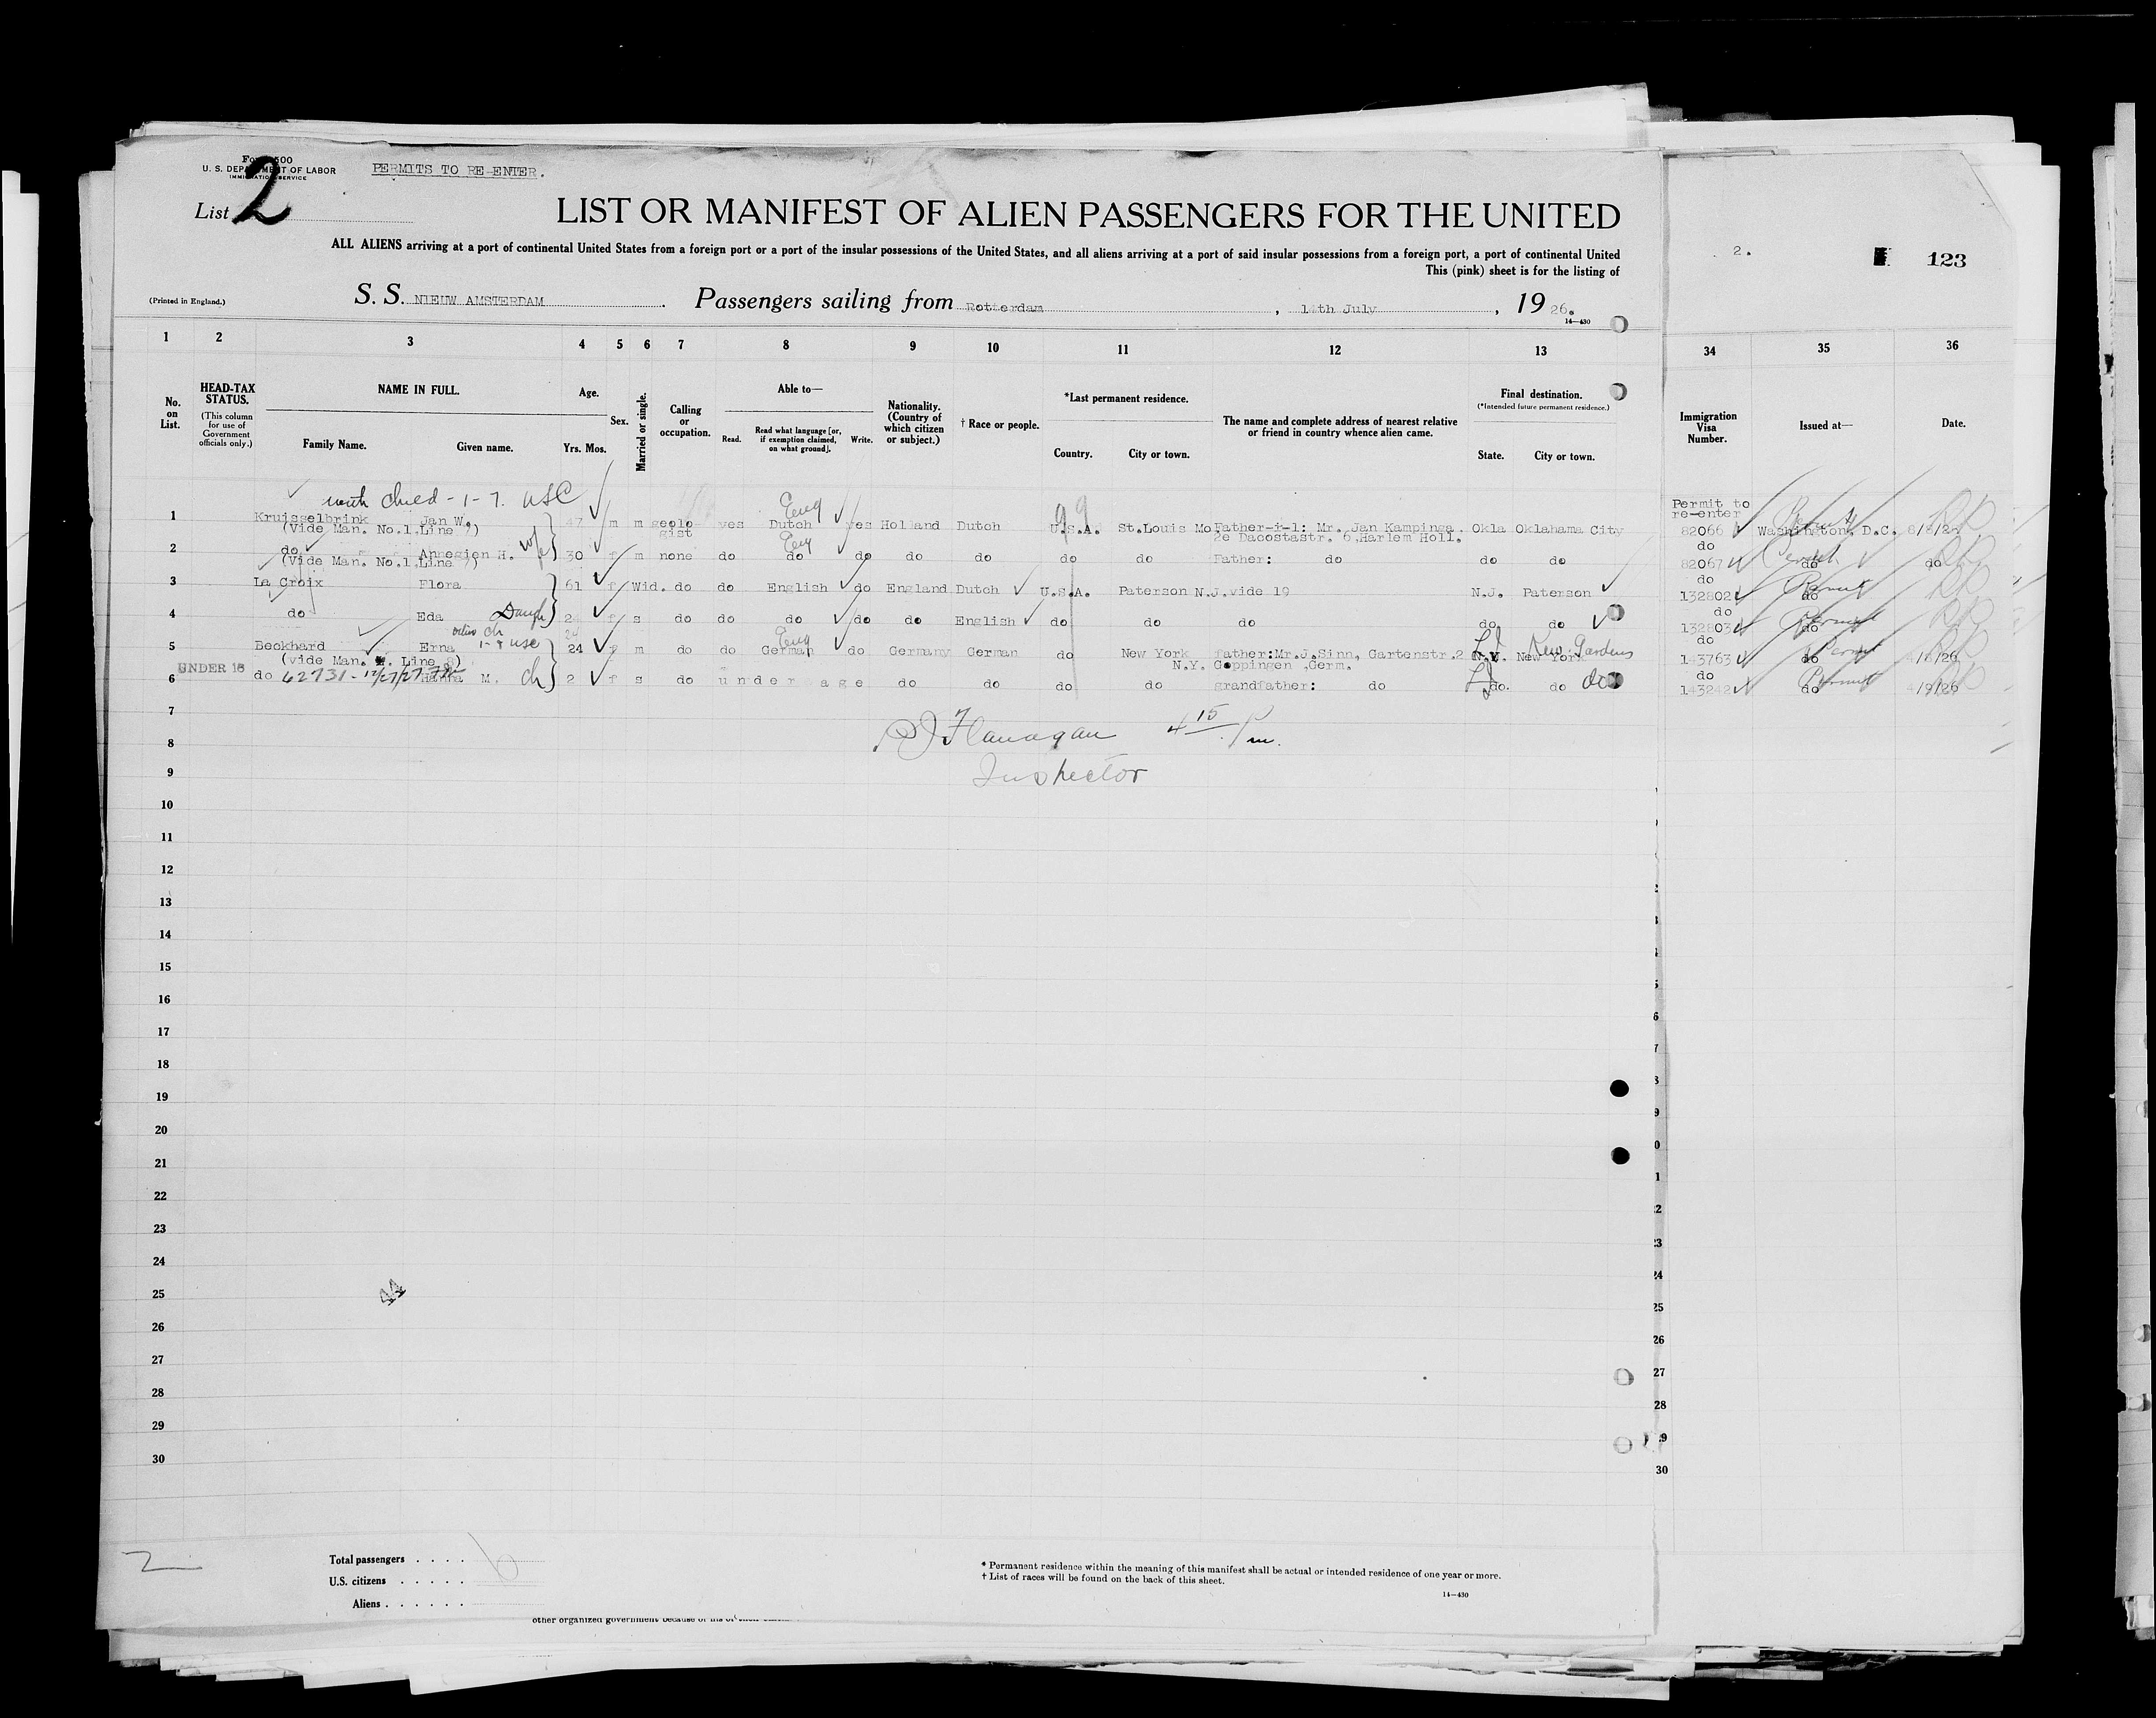 Form 500
U. S. DEPARTMENT OF LABOR
IMMIGRATION SERVICE
PERMITS TO RE-ENTER.
List 2
LIST OR MANIFEST OF ALIEN PASSENGERS FOR THE UNITED
ALL ALIENS arriving at a port of continental United States from a foreign port or a port of the insular possessions of the United States, and all aliens arriving at a port of said insular possessions from a foreign port, a port of continental United
This (pink) sheet is for the listing of
2. 123
(Printed in England.)
S. S. NIEUW AMSTERDAM Passengers sailing from Rotterdam, 14th July, 19 26.
14—430
1 2 3 4 5 6 7 8 9 10 11 12 13 34 35 36
No. on List.
HEAD-TAX STATUS.
(This column for use of Government officials only.)
NAME IN FULL.
Family Name. Given name.
Age.
Yrs. Mos.
Sex.
Married or single.
Calling or occupation.
Able to—
Read. Read what language [or, if exemption claimed, on what ground]. Write.
Nationality. (Country of which citizen or subject.)
† Race or people.
*Last permanent residence.
Country. City or town.
The name and complete address of nearest relative or friend in country whence alien came.
Final destination.
(*Intended future permanent residence.)
State. City or town.
Immigration Visa Number.
Issued at—
Date.
with child - 1 - 7. USC
Eng
Permit to re-enter
1 Kruisselbrink Jan W. 47 m m geologist yes Dutch yes Holland Dutch U.S.A. St.Louis Mo Father-i-l: Mr. Jan Kampinga. Okla Oklahoma City 82066 Washington, D.C.
(Vide Man. No.1,Line 7) 2e Dacostastr. 6,Harlem Holl.
wife Eng do Permit
2 do Annegien H. 30 f m none do do do do do do do Father: do do do 82067 do do
(Vide Man. No.1,Line 7)
do Permit
3 La Croix Flora 61 f Wid. do do English do England Dutch U.S.A. Paterson N.J. vide 19 N.J. Paterson 132802 do
Daugh do Permit
4 do Eda 24 f s do do do do do English do do do do do 132803 do
ch 1-8 USC Eng L I Kew Gardens do Permit
5 Beckhard Erna 24 f m do do German do Germany German do New York N.Y. father:Mr.J.Sinn, Gartenstr.2 N.Y. New York 143763 do
(vide Man. 1. Line 8) Goppingen ,Germ.
UNDER 16
62731 - 12/27/27 ch L I do do Permit
6 do Hanna M. 2 f s do under age do do do do grandfather: do do. do 143242 do 4/9/26
7
P J Flanagan 4 15 Pm.
8
Inspector
9
10
11
12
13
14
15
16
17
18
19
20
21
22
23
24
44
25
26
27
28
29
30
2
Total passengers . . . . 6
U.S. citizens . . . . .
Aliens . . . . . .
* Permanent residence within the meaning of this manifest shall be actual or intended residence of one year or more.
† List of races will be found on the back of this sheet.
14—430
other organized government because of his or their